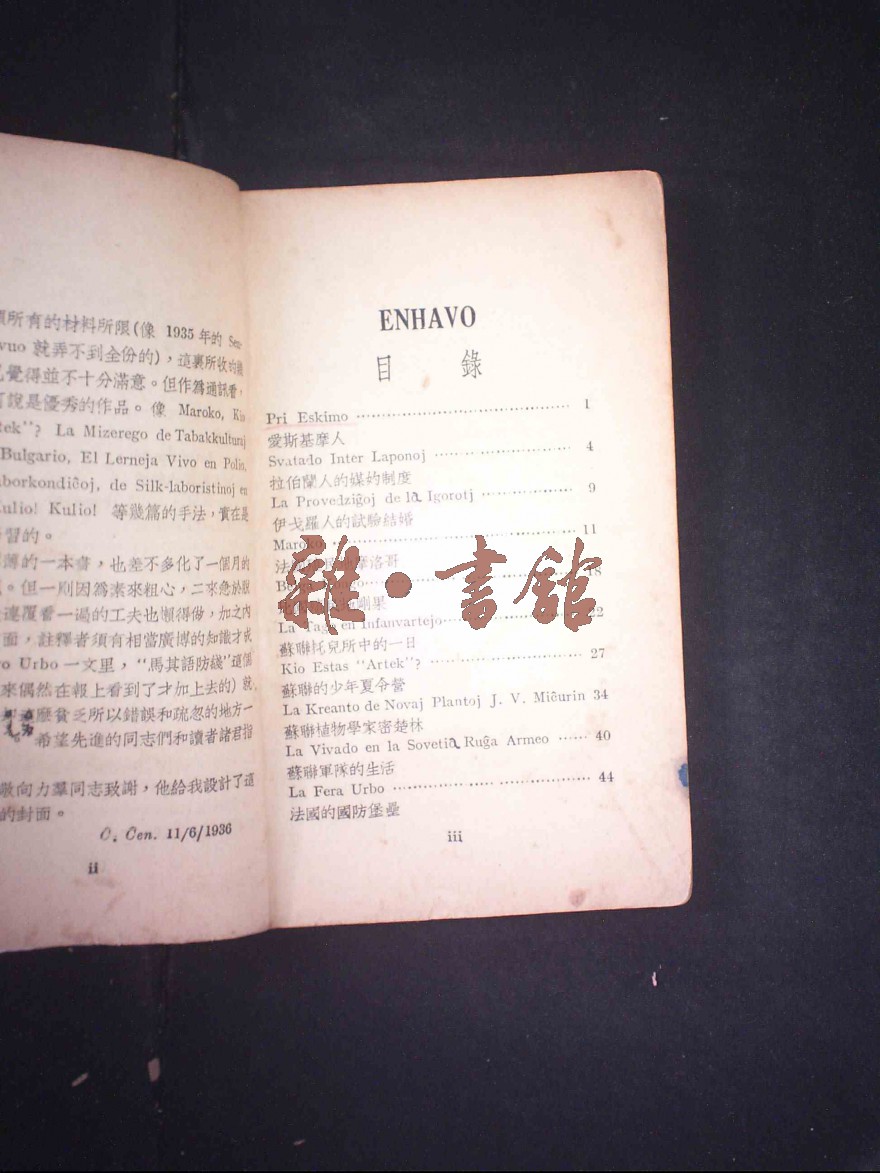 所有的材料所限(像 1935年的 Sen-
vuo 就弄不到全份的),這裏所收的幾
覺得並不十分滿意。但作爲通訊看,
說是優秀的作品。像 Maroko, Kio
rtek"? La Mizerego de Tabakkulturaj
Bulgario, El Lerneja Vivo en Polio,
aborkondiĉoj, de Silk-laboristinoj en
Kulio! Kulio! 等幾篇的手法,實在是
習的。
薄的一本書,也差不多化了一個月的
。但一則因爲素來粗心,二來急於脫
連覆看一過的工夫也懶得做,加之內
面,註釋者須有相當廣博的知識才成
ro Urbo 一文里,“馬其諾防綫”這個
來偶然在報上看到了才加上去的)就
麽貧乏所以錯誤和疏忽的地方一
希望先進的同志們和讀者諸君指
敬向力羣同志致謝,他給我設計了這
的封面。
C. Cen. 11/6/1936
ii
ENHAVO
目 錄
Pri Eskimo 1
愛斯基摩人
Svatado Inter Laponoj 4
拉伯蘭人的媒妁制度
La Provedziĝoj de la Igorotj 9
伊戈羅人的試驗結婚
Maroko 11
法 摩洛哥
18
剛果
La Tago en Infanvartejo 22
蘇聯托兒所中的一日
Kio Estas "Artek"? 27
蘇聯的少年夏令營
La Kreanto de Novaj Plantoj J. V. Miĉurin 34
蘇聯植物學家密楚林
La Vivado en la Sovetia Ruĝa Armeo 40
蘇聯軍隊的生活
La Fera Urbo 44
法國的國防堡壘
iii
雜·書館